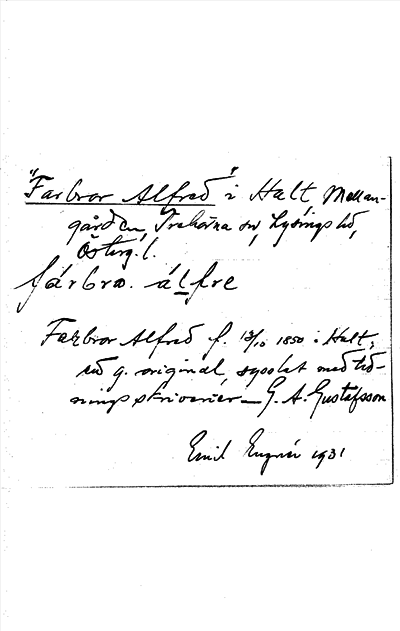 "Farbror Alfred" i Halt, Mellan-
gården, Trehörna sn, Lysings hd,
Österg. l.
fárbro. álfre
Farbror Alfred f. 13/10 1850 i Halt;
en g. original, sysslat med tid-
ningsskriverier — G. A. Gustafsson
Emil 1931